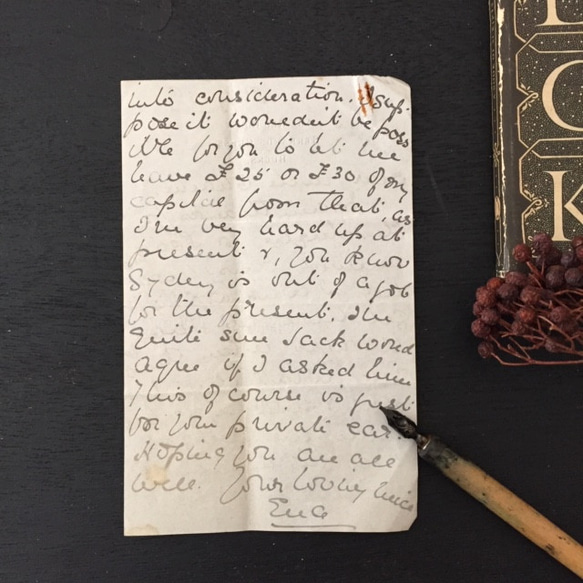 into consideration. I sup-
pose it wouldn't be poss
ible for you to let me
have £25 or £30 of my
capital from that, as
I'm very hard up at
present &, you know
Sydney is out of a job
for the present. I'm
quite sure Jack would
agree if I asked him
This of course is just
for your private ear.
Hoping you are all
well. Your loving niece
L
C
K